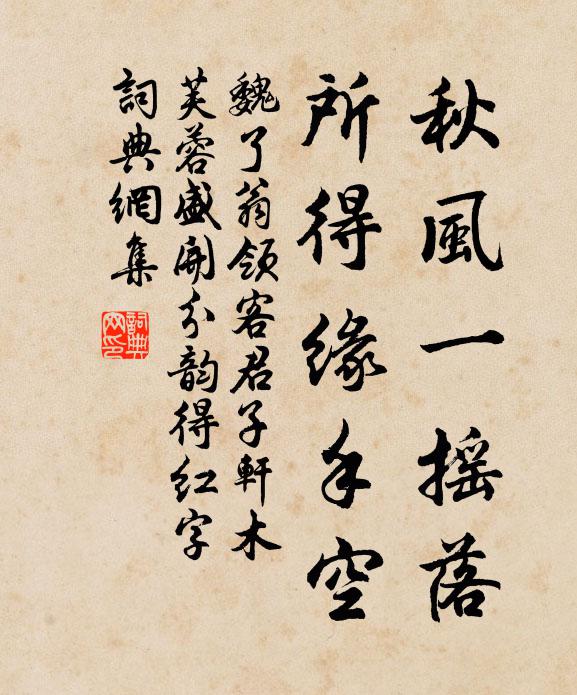 秋風一摇落
所得緣手空
魏了翁領客君子軒木
芙蓉盛開分韵得红字
詞典網集
詞典
网印